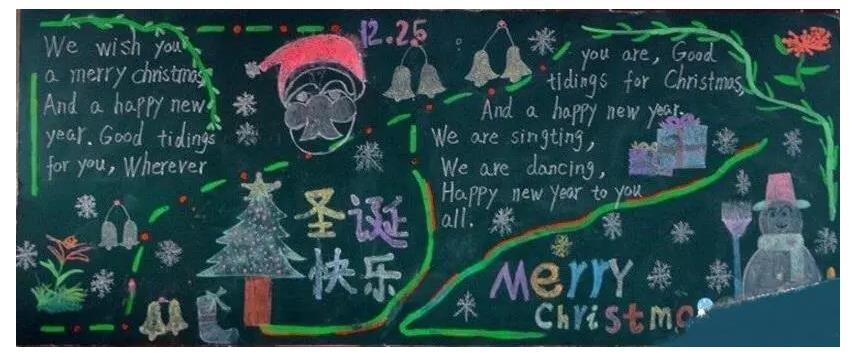 We wish you
a merry christmas
And a happy new
year. Good tidings
for you, Wherever
12.25
you are, Good
tidings for Christmas,
And a happy new year.
We are singting,
We are dancing,
Happy new year to you
all.
圣诞
快乐
Merry
Christma